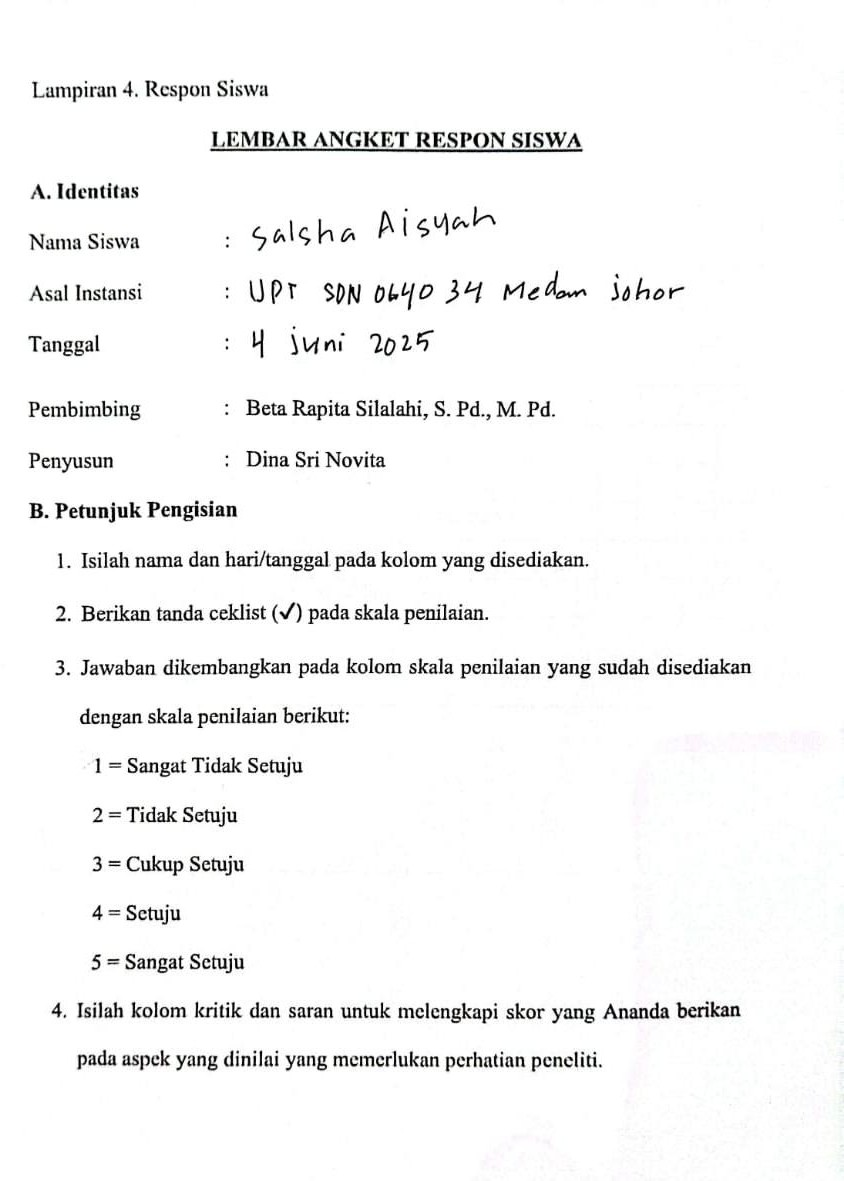 Lampiran 4. Respon Siswa
LEMBAR ANGKET RESPON SISWA
A. Identitas
Nama Siswa : Salsha Aisyah
Asal Instansi : UPT SDN 064034 Medan johor
Tanggal : 4 juni 2025
Pembimbing : Beta Rapita Silalahi, S. Pd., M. Pd.
Penyusun : Dina Sri Novita
B. Petunjuk Pengisian
1. Isilah nama dan hari/tanggal pada kolom yang disediakan.
2. Berikan tanda ceklist (✓) pada skala penilaian.
3. Jawaban dikembangkan pada kolom skala penilaian yang sudah disediakan
dengan skala penilaian berikut:
1 = Sangat Tidak Setuju
2 = Tidak Setuju
3 = Cukup Setuju
4 = Setuju
5 = Sangat Setuju
4. Isilah kolom kritik dan saran untuk melengkapi skor yang Ananda berikan
pada aspek yang dinilai yang memerlukan perhatian peneliti.